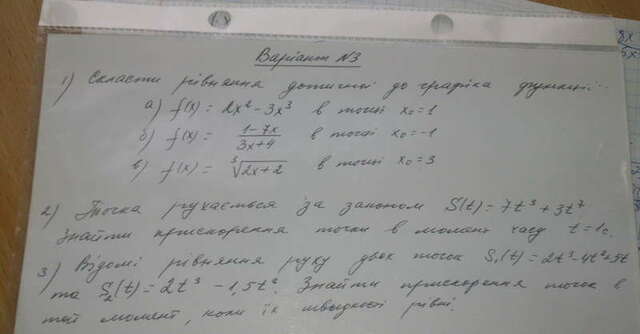 Варіант N3
1) Скласти рівняння дотичної до графіка функції:
а) f(x) = 2x² - 3x³ в точці x₀ = 1
б) f(x) = (1-7x)/(3x+4) в точці x₀ = -1
в) f(x) = ⁵√(2x+2) в точці x₀ = 3
2) Точка рухається за законом S(t) = 7t³ + 3t⁷
Знайти прискорення точки в момент часу t = 1с.
3) Відомі рівняння руху двох точок S₁(t) = 2t³ - 4t² + 5t
та S₂(t) = 2t³ - 1,5t². Знайти прискорення точок в
той момент, коли їх швидкості рівні.